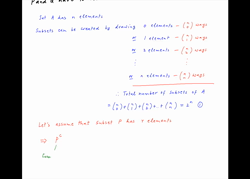 Set A has n elements
Subsets can be created by drawing 0 elements - (n 0) ways
or 1 element - (n 1) ways
or 2 elements - (n 2) ways
⋮ ⋮
or n elements - (n n) ways
∴ Total number of subsets of A
= (n 0) + (n 1) + (n 2) + .. + (n n) = 2^n ①
Let's assume that subset P has r elements